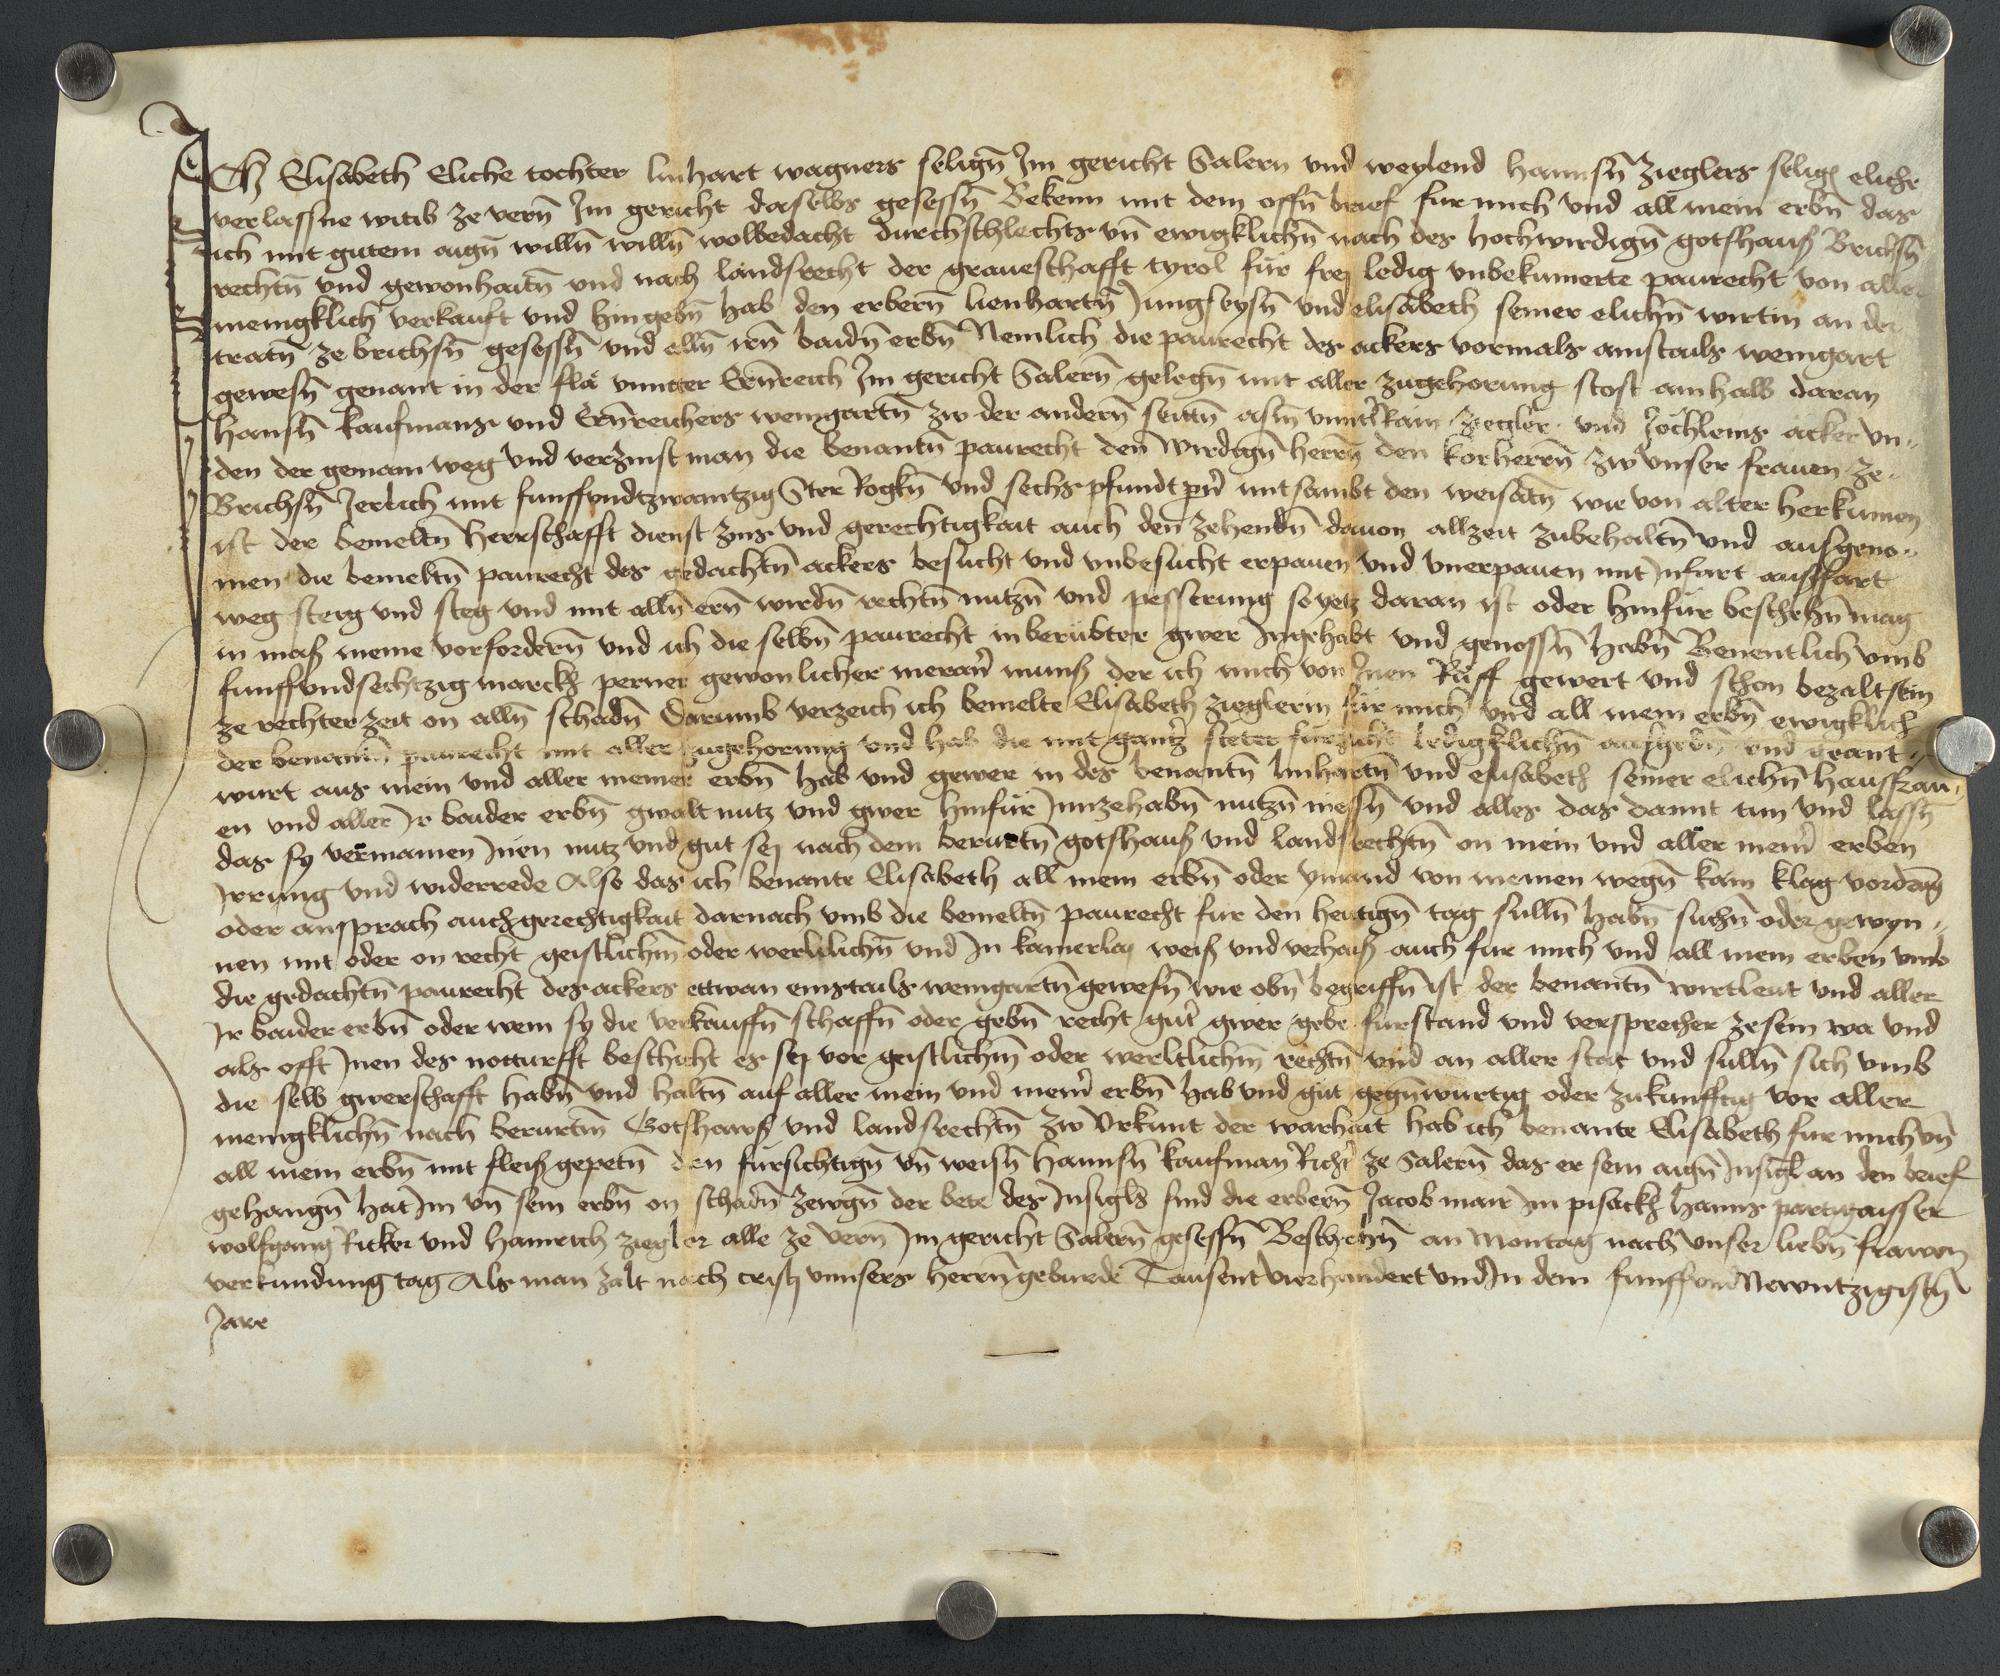 Ich Elisabeth Eliche tochter linhart wagners seligñ Im gericht Salern vnd weylend hannsñ zieglers selign eliche
verlassne witib ze vernñ Im gericht daselbs gesessñ Bekenn mit dem offñ brief fur mich vnd all mein erbñ das
ich mit gutem aigñ willñ willñ wolbedacht durchschlechts vñ ewigklichñ nach des hochwirdigñ gotshauß Brichsñ
rechtñ vnd gewonhaitñ vnd nach landsrecht der graueschafft tyrol für frej ledig vnbekumerte paurecht von aller
menigklich verkauft vnd hingebñ hab den erbernñ lienhartñ Jungseysñ vnd elisabeth seiner elichñ wirtin an der
tratñ ze brichsñ gesessñ vnd allñ irñ baidñ erbñ Nemlich die paurecht des ackers vormals ainstails weingart
gewesñ genant in der fla vnnter Ernreich Im gericht Salernñ gelegñ mit aller zugehorung stost ainhalb daran
hansñ kaufmans vnd Ernreichers weingartñ zw der andernñ seittñ vnnterkain ziegler vnd Jochleins acker vn„
den der gemain weg vnd verzinst man die benantñ paurecht den wirdigñ herrñ den korherrñ zw vnser frauen ze„
Brichsñ Jerlich mit funffvndtzwaintzig Ster Rogkñ vnd sechs pfundt pñr mitsambt den weisatñ wie von alter herkumen
ist der bemeltñ herrschafft dienst zins vnd gerechtigkait auch den zehendñ dauon allzeit zubehaltñ vnd ausgeno„
men die bemeltñ paurecht des gedachtñ ackers besucht vnd vnbesucht erpauen vnd vnerpauen mit Infart ausfart
weg sterg vnd steg vnd mit allñ ernñ wirdñ rechtñ nutzñ vnd pesserung so yetz daran ist oder hinfür beschehñ mag
in maß meine vorfordernñ vnd ich die selbñ paurecht in berubter gwer Ingehabt vnd genossñ habñ Benentlich vmb
funffvndsechtzig marckh perner gewonlicher meranr munß der ich mich von Inen Ruff gewert vnd schon bezalt sein
ze rechter zeit on allñ schadñ Darumb verzeich ich bemelte Elisabeth zieglerin für mich vnd all mein erbñ ewigklich
der benantñ paurecht mit aller zugehorung vnd hab die mit gantzr steter furzicht ledigklichñ aufgebñ vnd geant„
wurt aus mein vnd aller meiner erbñ hab vnd gewer in des benantñ linhartñ vnd elisabeth seiner elichñ hausfrau„
en vnd aller Ir baider erbñ gwalt nutz vnd gwer hinfür Innzehabñ nutzñ niessñ vnd alles das damit tun vnd lassñ
das sy vermainen Inen nutz vnd gut sej nach dem berurtñ gotshauß vnd landsrechtñ on mein vnd aller meinr erben
Irrung vnd widerrede Also das ich benante Elisabeth all mein erbñ oder ymand von meinen wegñ kain klag vordrung
oder ansprach auch gerechtigkait darnach vmb die bemeltñ paurecht fur den heutigñ tag sullñ habñ suchñ oder gewyn„
nen mit oder on recht geistlichm oder werltlichñ vnd In kainerlaj weiß vnd verhaiß auch fur mich vnd all mein erben vmb
die gedachtñ paurecht des ackers ettwan einstails weingartñ gewesñ wie obñ begriffñ ist der benantñ wirtleut vnd aller
Ir baider erbñ oder wem sy die verkauffñ schaffñ oder gebñ recht gut gwer gebe furstand vnd versprecher zesein wa vnd
als offt Inen des notturfft beschicht es sej vor geistlichm oder werltlichm rechtñ vnd an aller stat vnd sullñ sich vmb
die selb gwerschafft habñ vnd haltñ auf aller mein vnd meinr erbñ hab vnd gut gegñwurtig oder zukunfftig vor aller
menigklichñ nach berurtm Gotshawß vnd landsrechtñ zw Vrkunt der warhait hab ich benante Elisabeth fur mich vñ
all mein erbñ mit fleiß gepetñ den fursichtigñ vñ weisñ hannsñ kaufman Richtr ze Salernñ das er sein aigñ Insigl an den brief
gehangñ hat Im vñ sein erbñ on schadñ zewgñ der bete des Insigls sind die erbernñ Jacob mair Im pisackh hanns partigaisser
wolfgang Ricker vnd hainrich ziegler alle ze vernñ Im gericht Salernñ gesessñ Beschehñ an Montag nach vnser liebñ frawen
verkundung tag Als man zalt nach cristj vnnsers herrñ geburde Tausent vierhundert vnd In dem funffvndNewntzigistñ
Jare